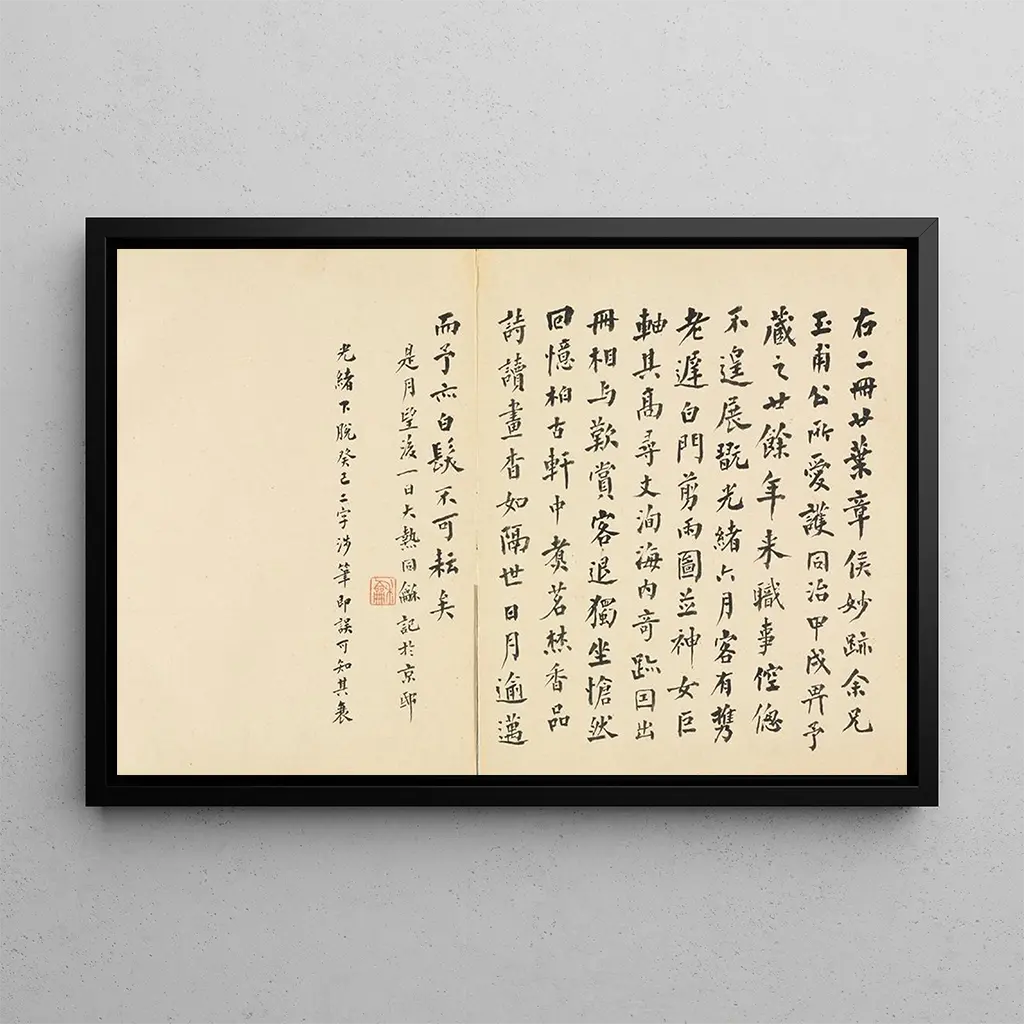 右二冊廿葉章侯妙跡余兄
玉甫公所愛護同治甲戌畀予
藏之廿餘年來職事倥傯
不遑展翫光緒六月客有攜
老遲白門剪雨圖並神女巨
軸其高尋丈洵海內奇跡因出
冊相与歎賞客退獨坐愴然
回憶柏古軒中煮茗焚香品
詩讀畫杳如隔世日月逾邁
而予亦白髮不可耘矣
是月望後一日大熱同龢記於京邸
光緒下脫癸巳二字涉筆即誤可知其衰